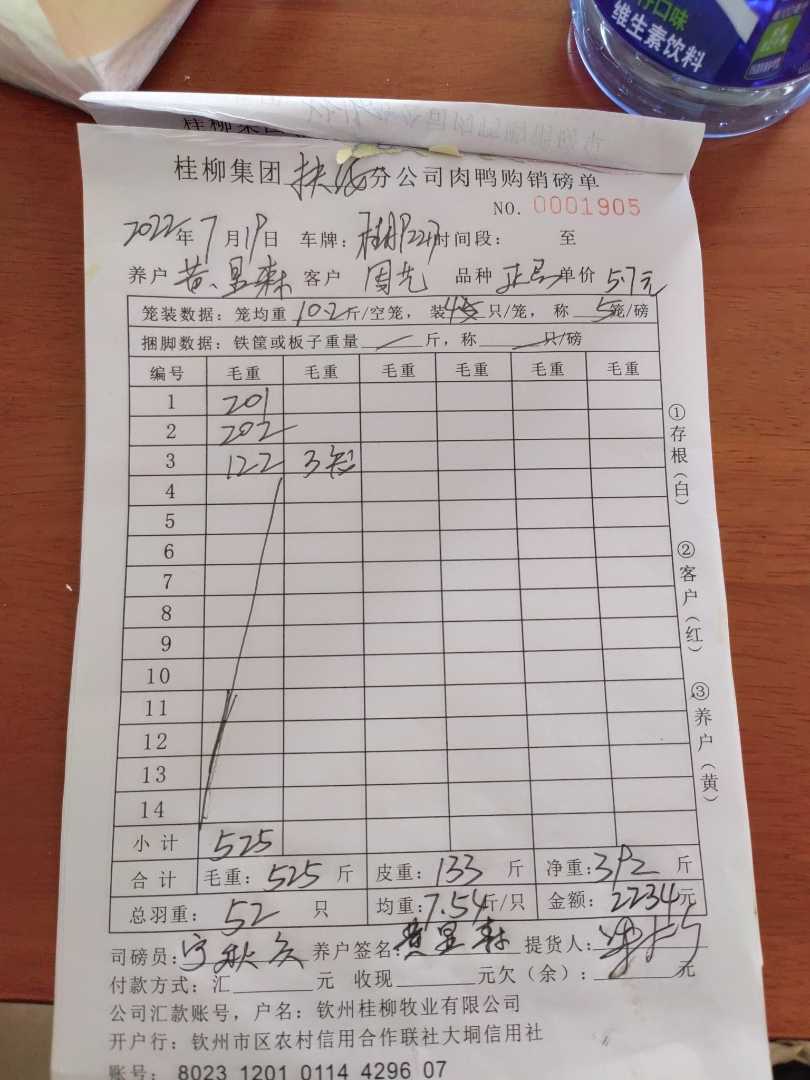 口味
维生素饮料
桂柳集团
桂柳集团 分公司肉鸭购销磅单
NO. 0001905
2022年7月19日 车牌: 时间段: 至
养户 黄显森 客户 周先 品种 单价 5.7元
笼装数据: 笼均重 10.2斤/空笼, 装 只/笼, 称 5笼/磅
捆脚数据: 铁筐或板子重量 斤, 称 只/磅
编号 毛重 毛重 毛重 毛重 毛重 毛重
1 201
2 202
3 122 3笼
4
5
6
7
8
9
10
11
12
13
14
小计 525
合计 毛重: 525 斤 皮重: 133 斤 净重: 392 斤
总羽重: 52 只 均重: 7.54斤/只 金额: 2234元
司磅员: 宁秋 养户签名: 黄显森 提货人:
付款方式: 汇 元 收现 元欠(余): 元
公司汇款账号, 户名: 钦州桂柳牧业有限公司
开户行: 钦州市区农村信用合作联社大垌信用社
账号: 8023 1201 0114 4296 07
①存根(白)
②客户(红)
③养户(黄)